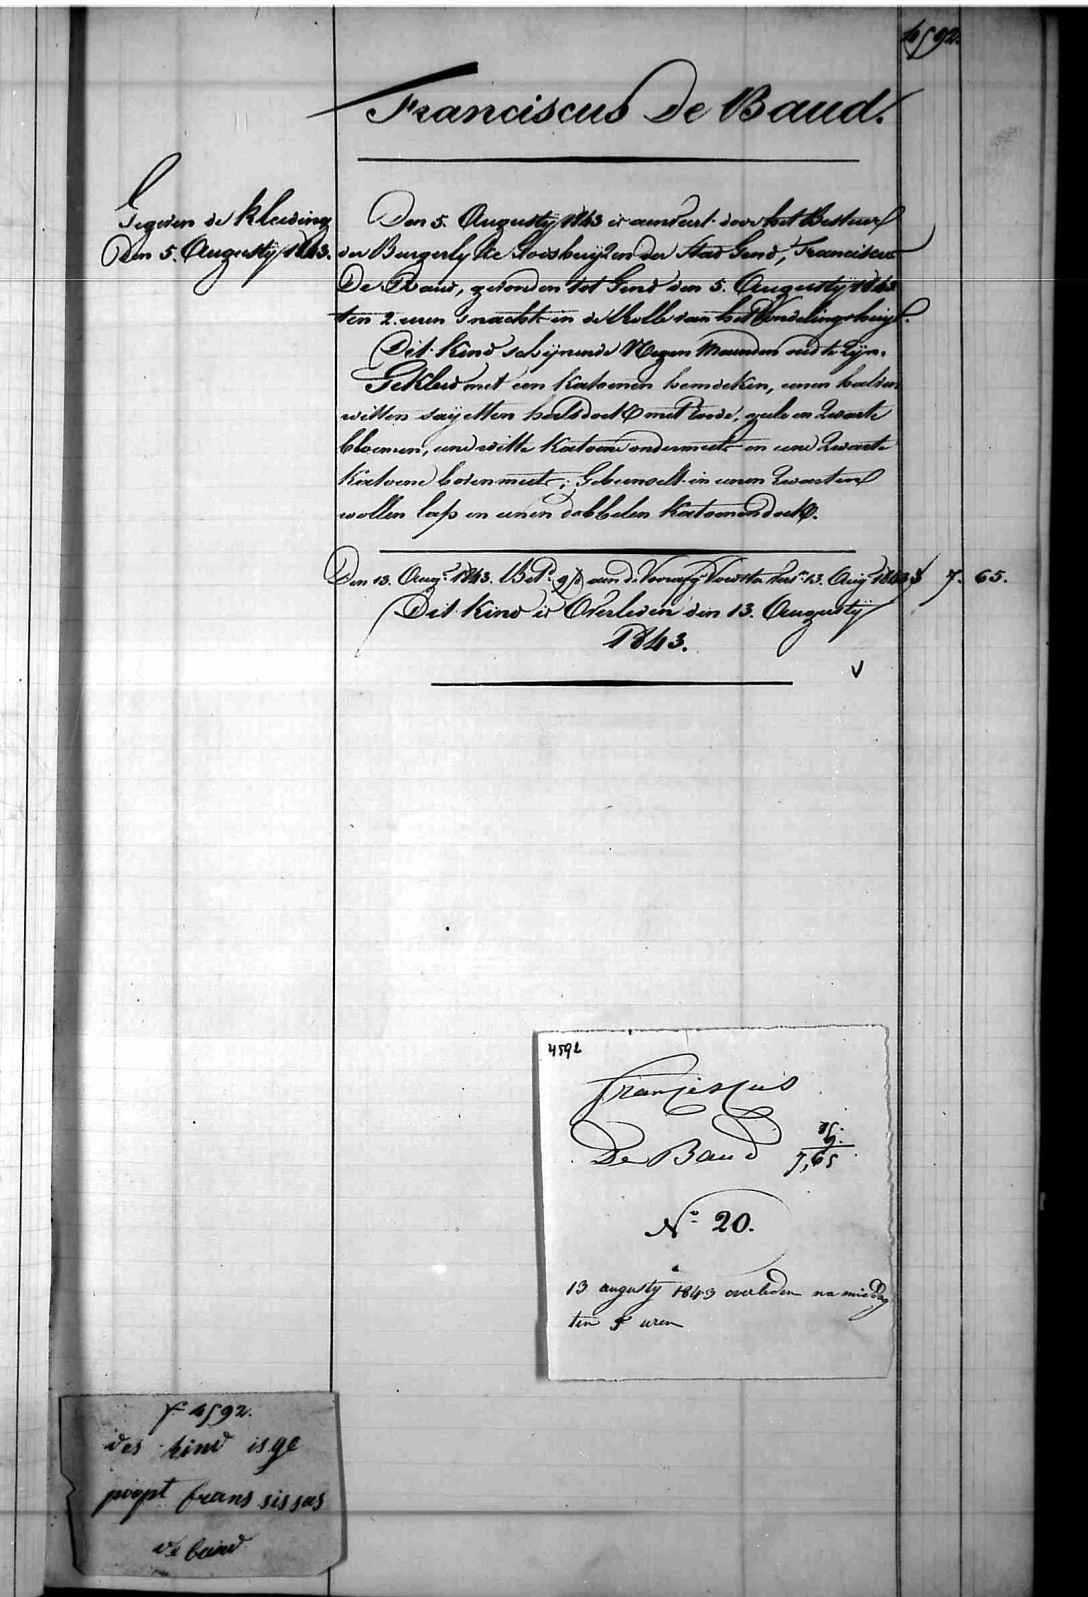 4592.
Franciscus De Baud.
Gegeven de kleeding
Den 5. Augusty 1843.
Den 5. Augusty 1843 is aenveirt door het Bestuer
der Burgerlyke Godshuyzen der Stad Gend, Franciscus
De Baud, gevonden tot Gend den 5. Augusty 1843
ten 2. uren s'nachts in de Rolle van het Vondelingshuys.
Dit Kind schynende Negen Maenden oud te zyn.
Gekleed met een katoenen hemdeken, eenen
witten sayetten halsdoek met roode, geele en zwarte
bloemen, eene witte katoene ondermuts en eene zwarte
katoene bovenmuts; Gebunselt in eenen zwarten
wollen lap en eenen dobbelen katoenen doek.
Den 13. Aug. 1843. Bet. aan de 13. Aug. 1843 7. 65.
Dit Kind is Overleden den 13. Augusty
1843.
V
4592
Franciscus
De Baud
7,65
No. 20.
13 augusty 1843 overleden na middag
ten 5 uren
f 4592.
des kind is ge
poopt frans sissus
de baud